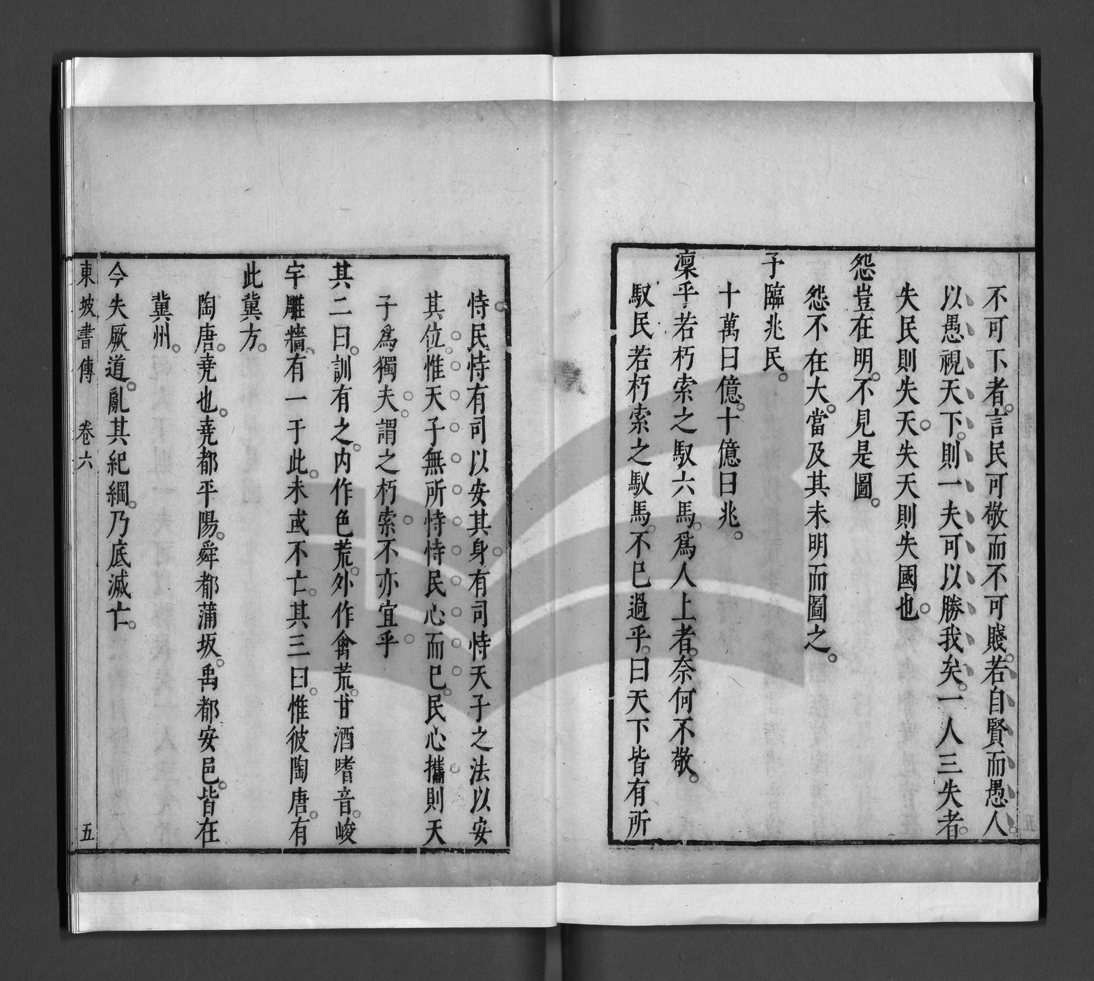 不可下者。言民可敬而不可賤。若自賢而愚人。
以愚視天下。則一夫可以勝我矣。一人三失者。
失民則失天。失天則失國也。
怨豈在明。不見是圖。
怨不在大。當及其未明而圖之。
子臨兆民。
十萬曰億。十億曰兆。
凜乎若朽索之馭六馬。爲人上者。奈何不敬。
馭民若朽索之馭馬。不已過乎。曰天下皆有所
恃。民恃有司以安其身。有司恃天子之法以安
其位。惟天子無所恃。恃民心而已。民心攜則天
子爲獨夫。謂之朽索。不亦宜乎。
其二曰。訓有之。内作色荒。外作禽荒。甘酒嗜音。峻
宇雕牆。有一于此。未或不亡。其三曰。惟彼陶唐。有
此冀方。
陶唐。堯也。堯都平陽。舜都蒲坂。禹都安邑。皆在
冀州。
今失厥道。亂其紀綱。乃底滅亡。
東坡書傳 卷六 五